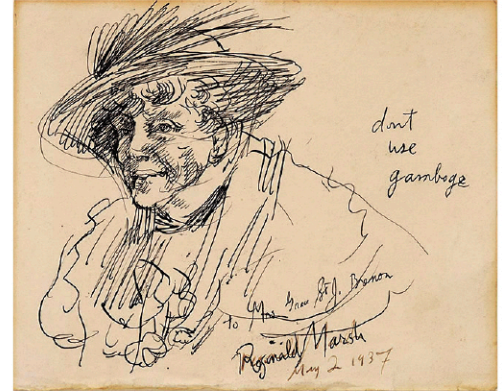 dont
use
gamboge
to Mrs St. J. Brenon
Reginald Marsh
May 2 1937